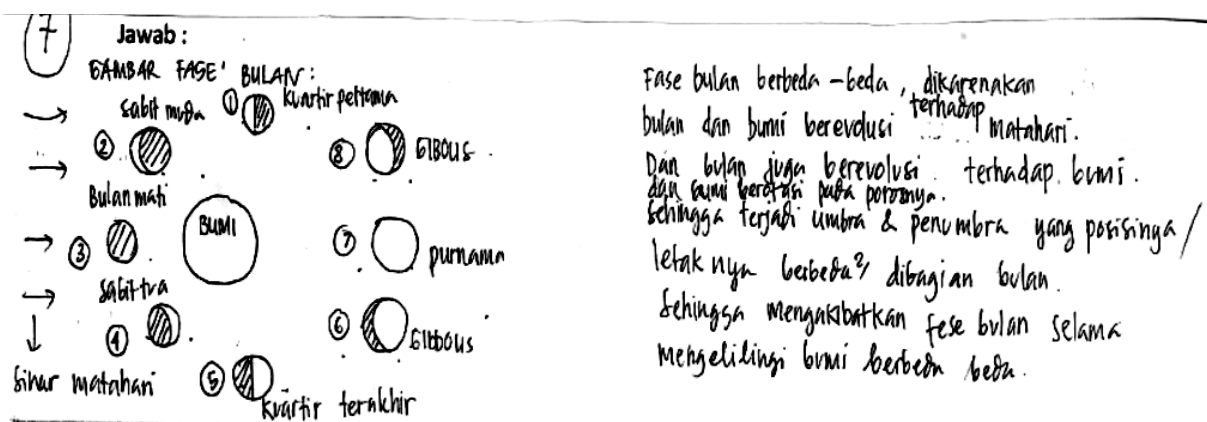 7
Jawab :
GAMBAR FASE' BULAN :
① kuartir pertama
sabit muda
②
⑧ GIBOUS
Bulan mati
③
BUMI
⑦ purnama
sabit tua
④
⑥ Gibbous
sinar matahari
⑤
kuartir terakhir
Fase bulan berbeda-beda, dikarenakan
bulan dan bumi berevolusi terhadap matahari.
Dan bulan juga berevolusi terhadap bumi.
dan bumi berotasi pada porosnya.
sehingga terjadi umbra & penumbra yang posisinya/
letak nya berbeda² dibagian bulan.
Sehingga mengakibatkan fese bulan selama
mengelilingi bumi berbeda beda.